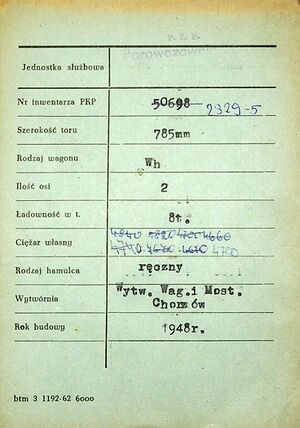 P. K. P.
Parowozownia
Jednostka służbowa
Nr inwentarza PKP 50698 2329-5
Szerokość toru 785mm
Rodzaj wagonu Wh
Ilość osi 2
Ładowność w t. 8t.
Ciężar własny 4840 4820 4700 4660
4740 4670 4610 4700
Rodzaj hamulca ręczny
Wytwórnia Wytw. Wag.i Most.
Chorzów
Rok budowy 1948r.
btm 3 1192-62 6000